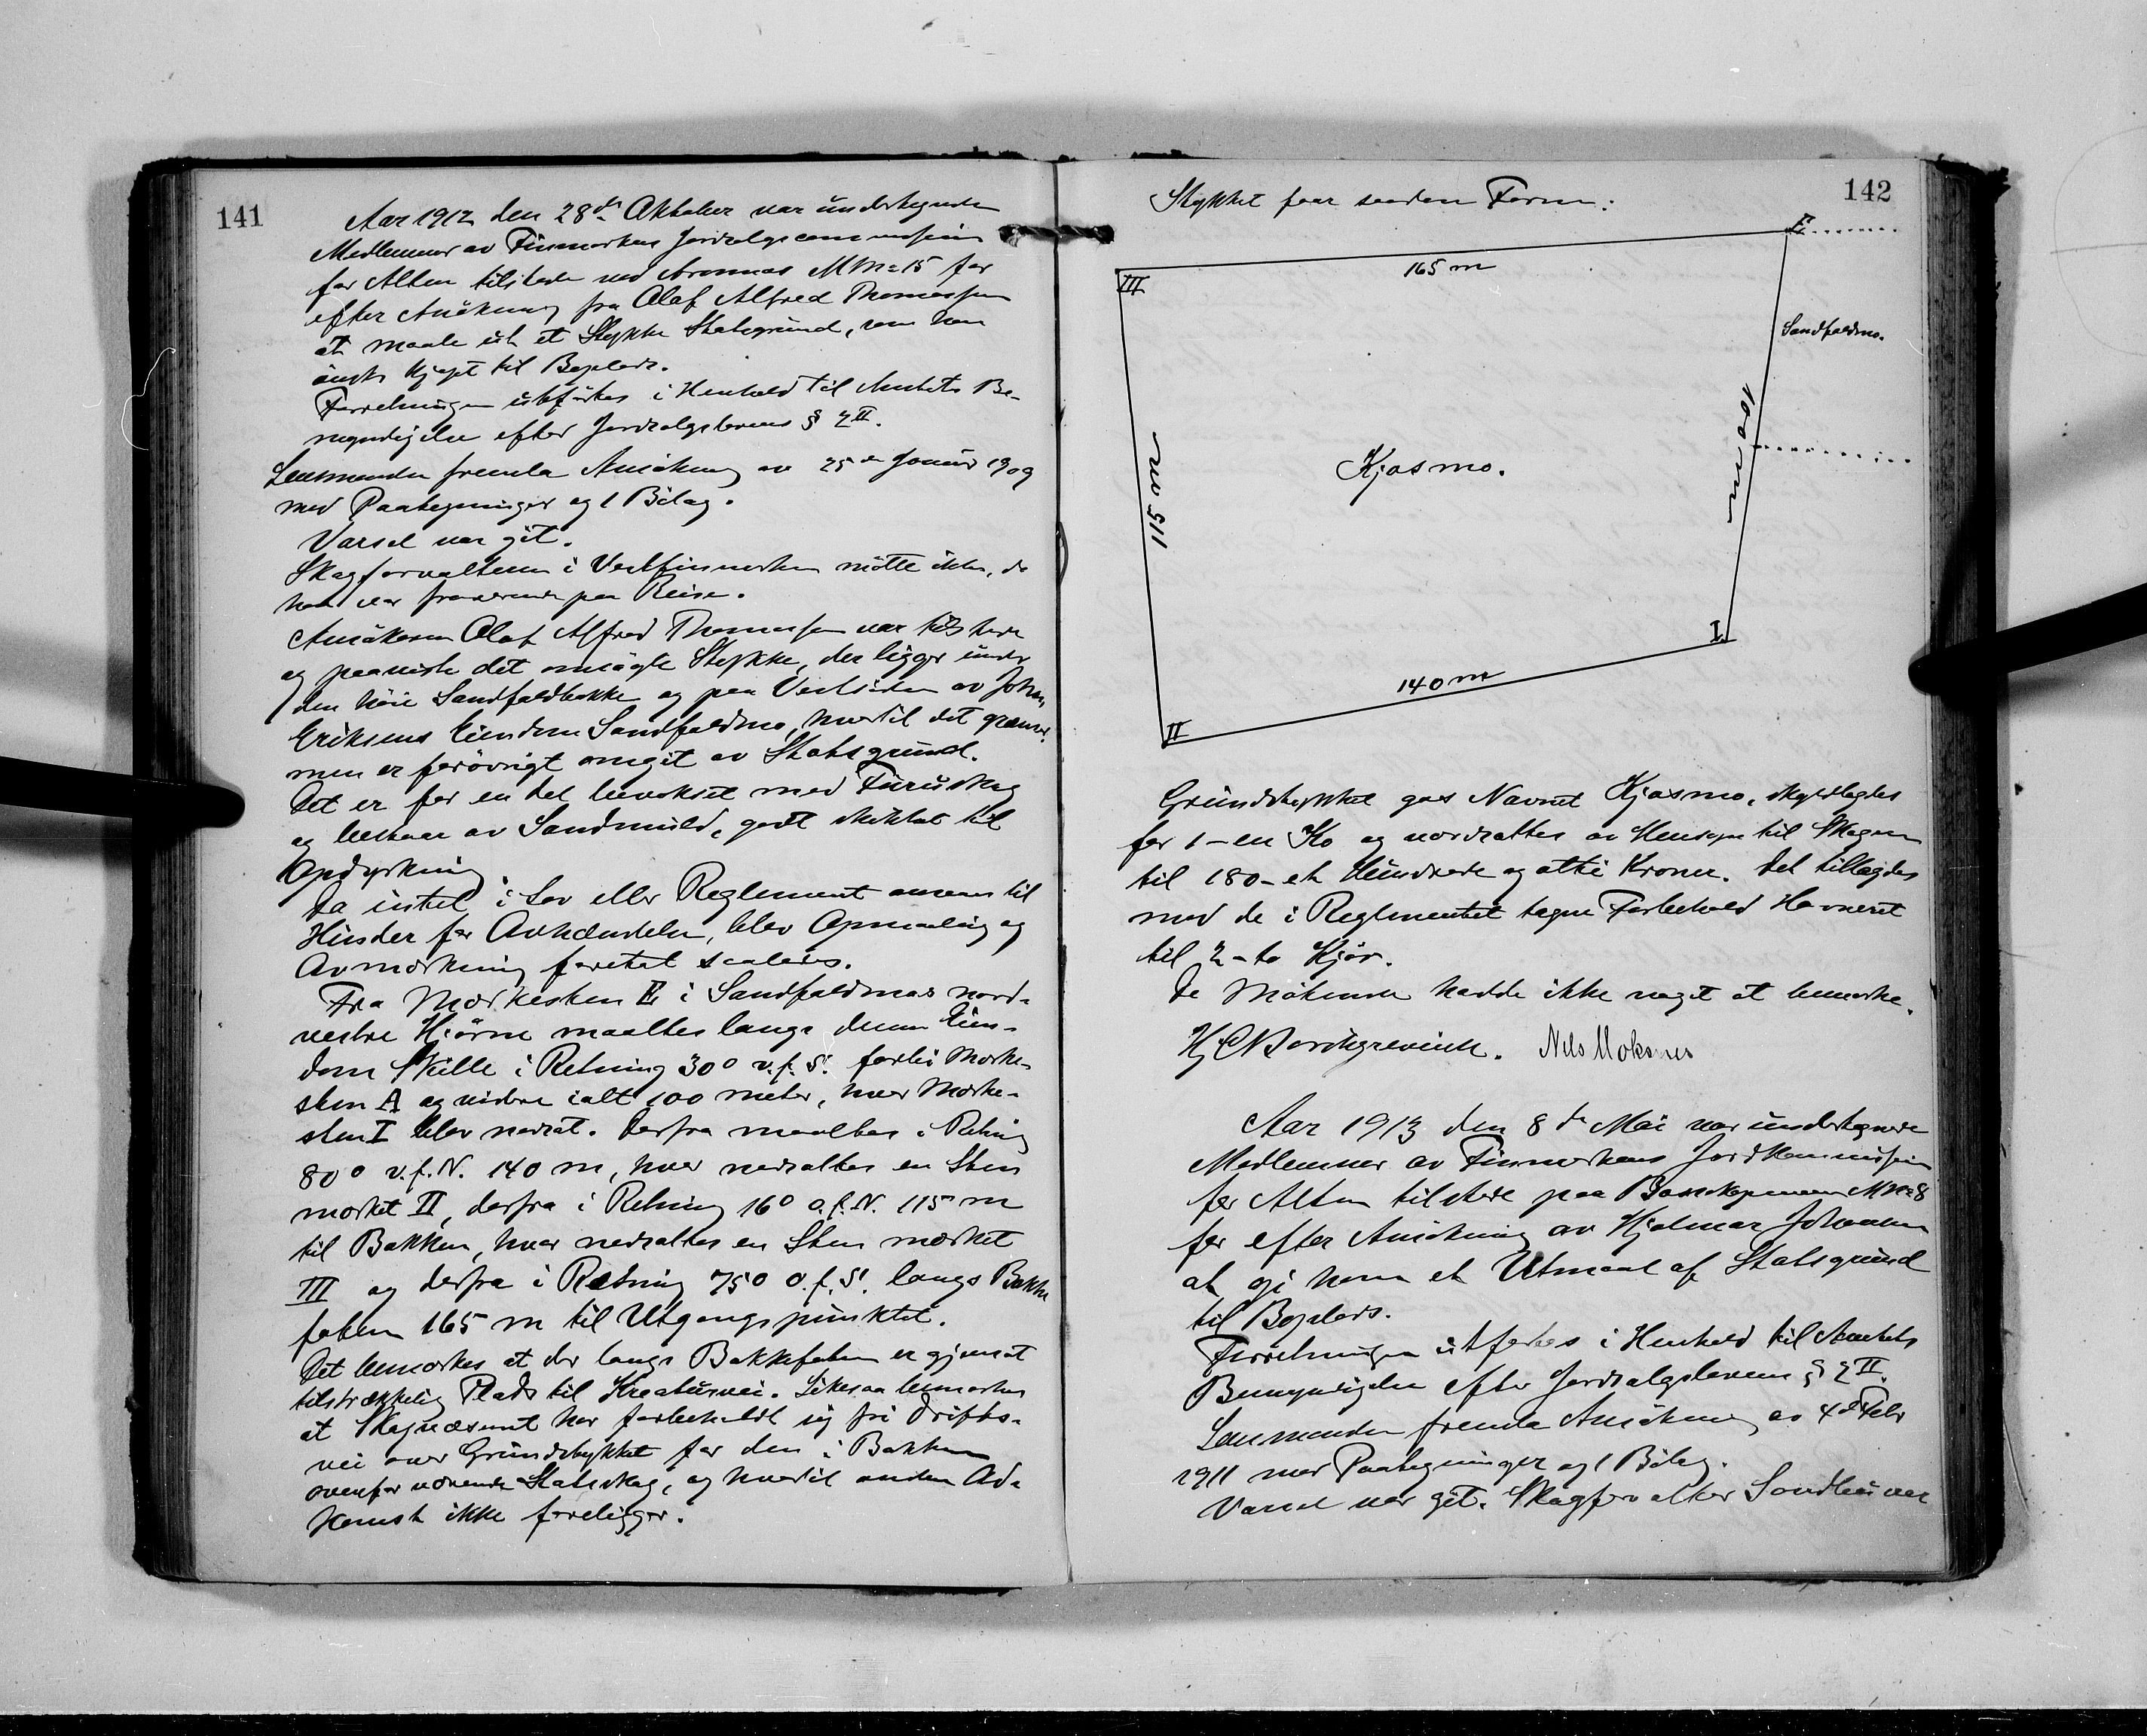 141
Aar 1912 den 28de Oktober var undertegnede
Medlemmer av Finmarkens Jordsalgscommission
for Alten tilstede ved Aronnes MNr 15 for
efter Ansökning fra Olaf Alfred Thomassen
at maale ut et Stykke Statsgrund, som han
önsker kjøpt til Boplads.
Forretningen utførtes i Henhold til Amtets Be-
myndigelse efter Jordsalgslovens § 2 II.
Lensmanden fremla Ansökning av 25de Januar 1909
med Paategninger og 1 Bilag.
Varsel var git.
Skogforvalteren i Vestfinmarken mötte ikke, da
han var fraværende paa Reise.
Ansökeren Olaf Alfred Thomassen var tilstede
og paaviste det omsögte Stykke, der ligger under
den höie Sandfaldbakke og paa Vestsiden av Johan
Eriksens Eiendom Sandfaldmo, hvortil det grænser,
men er forövrigt omgit av Statsgrund.
Det er for en del bevokset med Furuskog
og bestaar av Sandmuld, godt skikket til
Opdyrkning.
Da intet i Lov eller Reglement ansees til
Hinder for Avhændelse, blev Opmaaling og
Avmerkning foretat saaledes.
Fra Merkesten E i Sandfaldmos nord-
vestre Hjörne maaltes langs denne Eien-
doms Skille i Retning 30° v.f.S. forbi Merke-
sten A og videre ialt 100 meter, hvor Merke-
sten I blev nedsat. Derfra maaltes i Retning
80° v.f.N. 140 m, hvor nedsattes en Sten
merket II, derfra i Retning 16° o.f.N. 115 m
til Bakken, hvor nedsattes en Sten merket
III og derfra i Retning 75° O.f.S. langs Bakke
foten 165 m til Utgangspunktet.
Det bemerkes at der langs Bakkefoten er gjensat
tilstrækkelig Plads til Kreaturvei. Likesaa bemerkes
at Skogvæsenet har forbeholdt sig fri Drifts-
vei over Grundstykket for den i Bakken
ovenfor værende Statsskog, og hvortil anden Ad-
komst ikke foreligger.
142
Stykket faar saadan Form:
E
165 m
III
Sandfaldmo.
100 m
Kjosmo.
115 m
I
140 m
II
Grundstykket gaes Navnet Kjosmo, skyldlagdes
for 1 - en Ko og værdsattes av Hensyn til Skogen
til 180 - et Hundrede og otti Kroner. Det tillagdes
med de i Reglementet tagne Forbehold Havneret
til 2 - to Kjör.
De Mötende hadde ikke noget at bemerke.
Hj C Borchgrevink. Nils Moksnes
Aar 1913 den 8de Mai var undertegnede
Medlemmer av Finmarkens Jordkommission
for Alten tilstede paa MNr 8
for efter Ansökning av Hjalmar Johansen
at gi ham et Utmaal af Statsgrund
til Boplads.
Forretningen utførtes i Henhold til Amtets
Bemyndigelse efter Jordsalgslovens § 2 II.
Lensmanden fremla Ansökning av 4de Febr
1911 med Paategninger og 1 Bilag.
Varsel var git. Skogforvalter